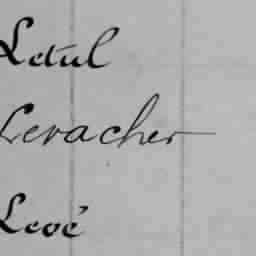 Letul
Leracher
Levé